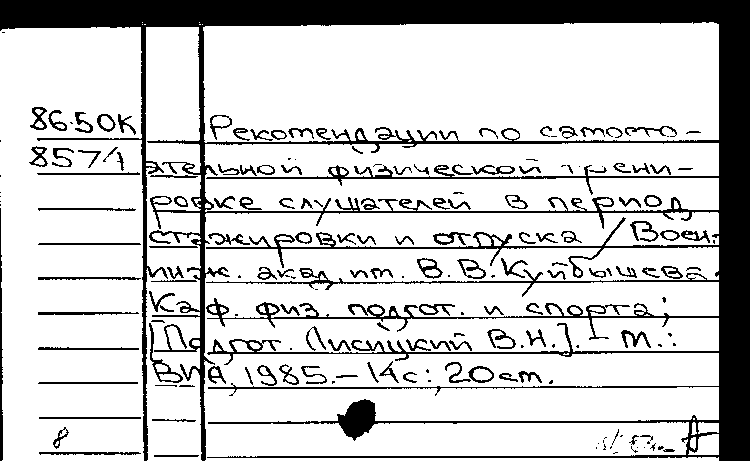 86.50К Рекомендации по самосто-
8574 ятельной физической трени-
ровке слушателей в период
стажировки и отпуска / Воен.
инж. акад. им. В.В.Куйбышева.
Каф. физ. подгот. и спорта;
[Подгот. Лисицкий В.Н.]. - М.:
ВИА, 1985. - 14 с.; 20 см.
8